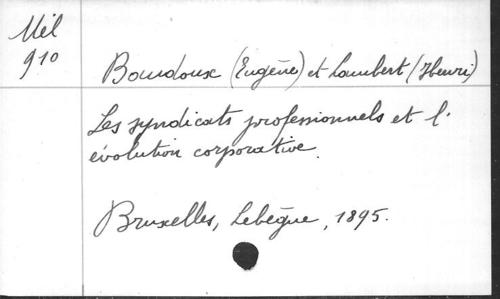 Mél
910
Baudoux (Eugène) et Lambert (Henri)
Les syndicats professionnels et l'
évolution corporative.
Bruxelles, Lebègue, 1895.